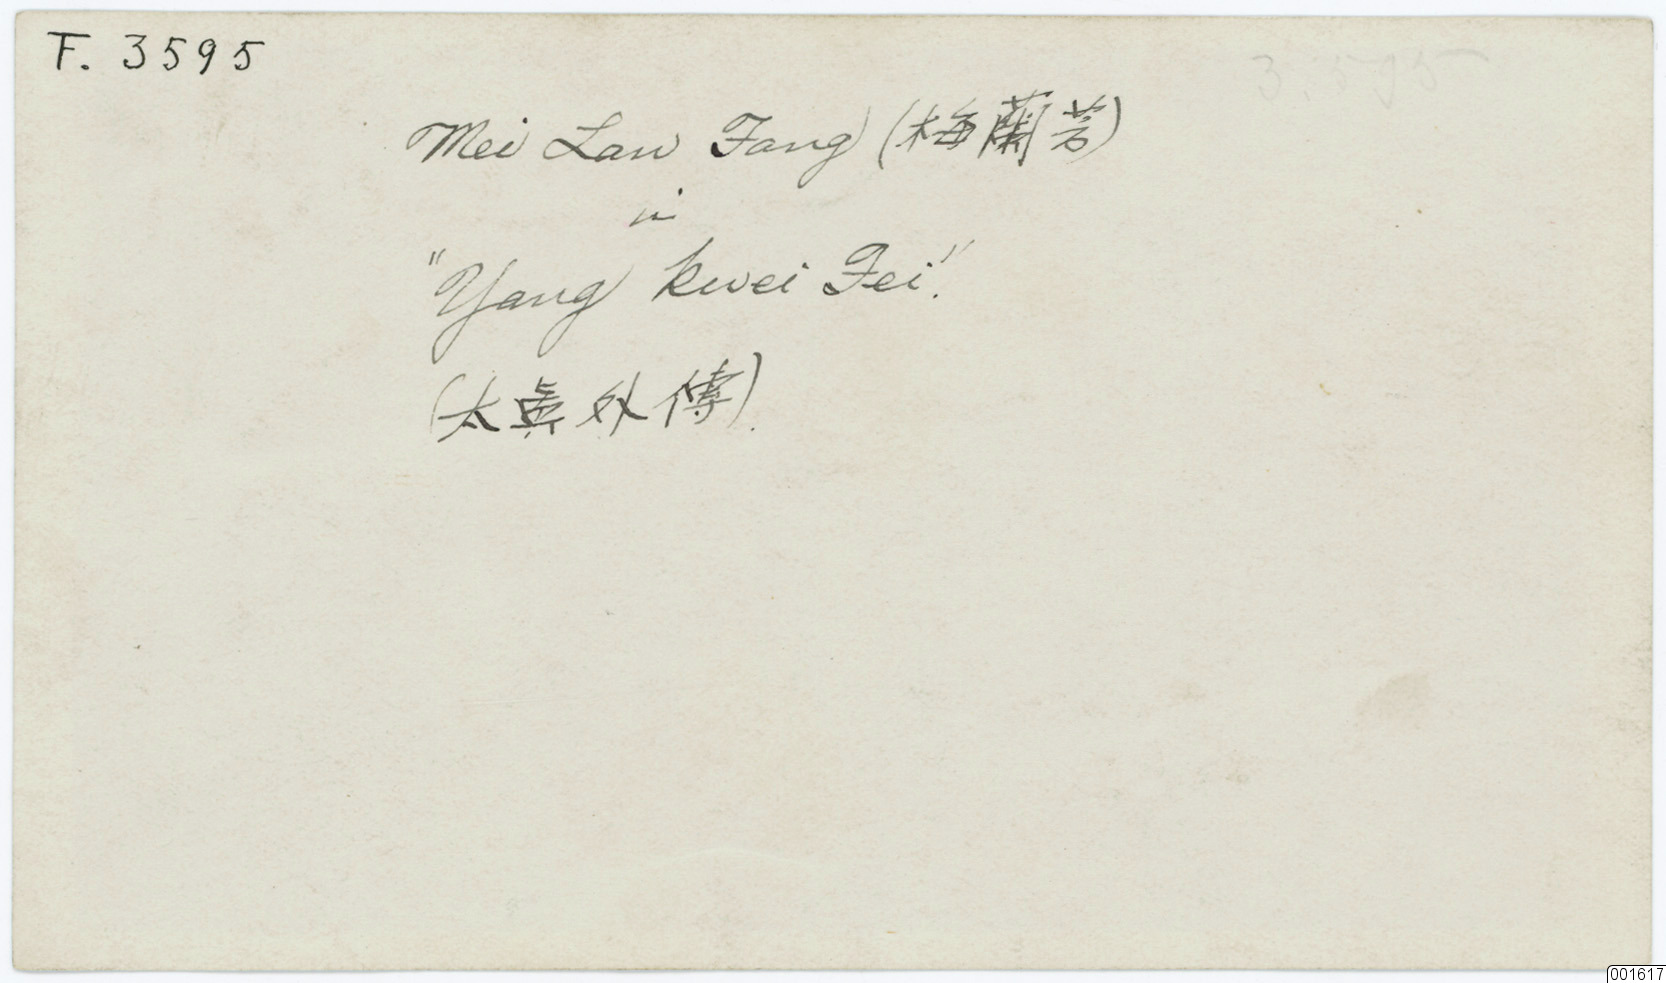 F. 3595
3595
Mei Lan Fang (梅蘭芳)
in
"Yang Kwei Fei".
(太眞外傳).
001617